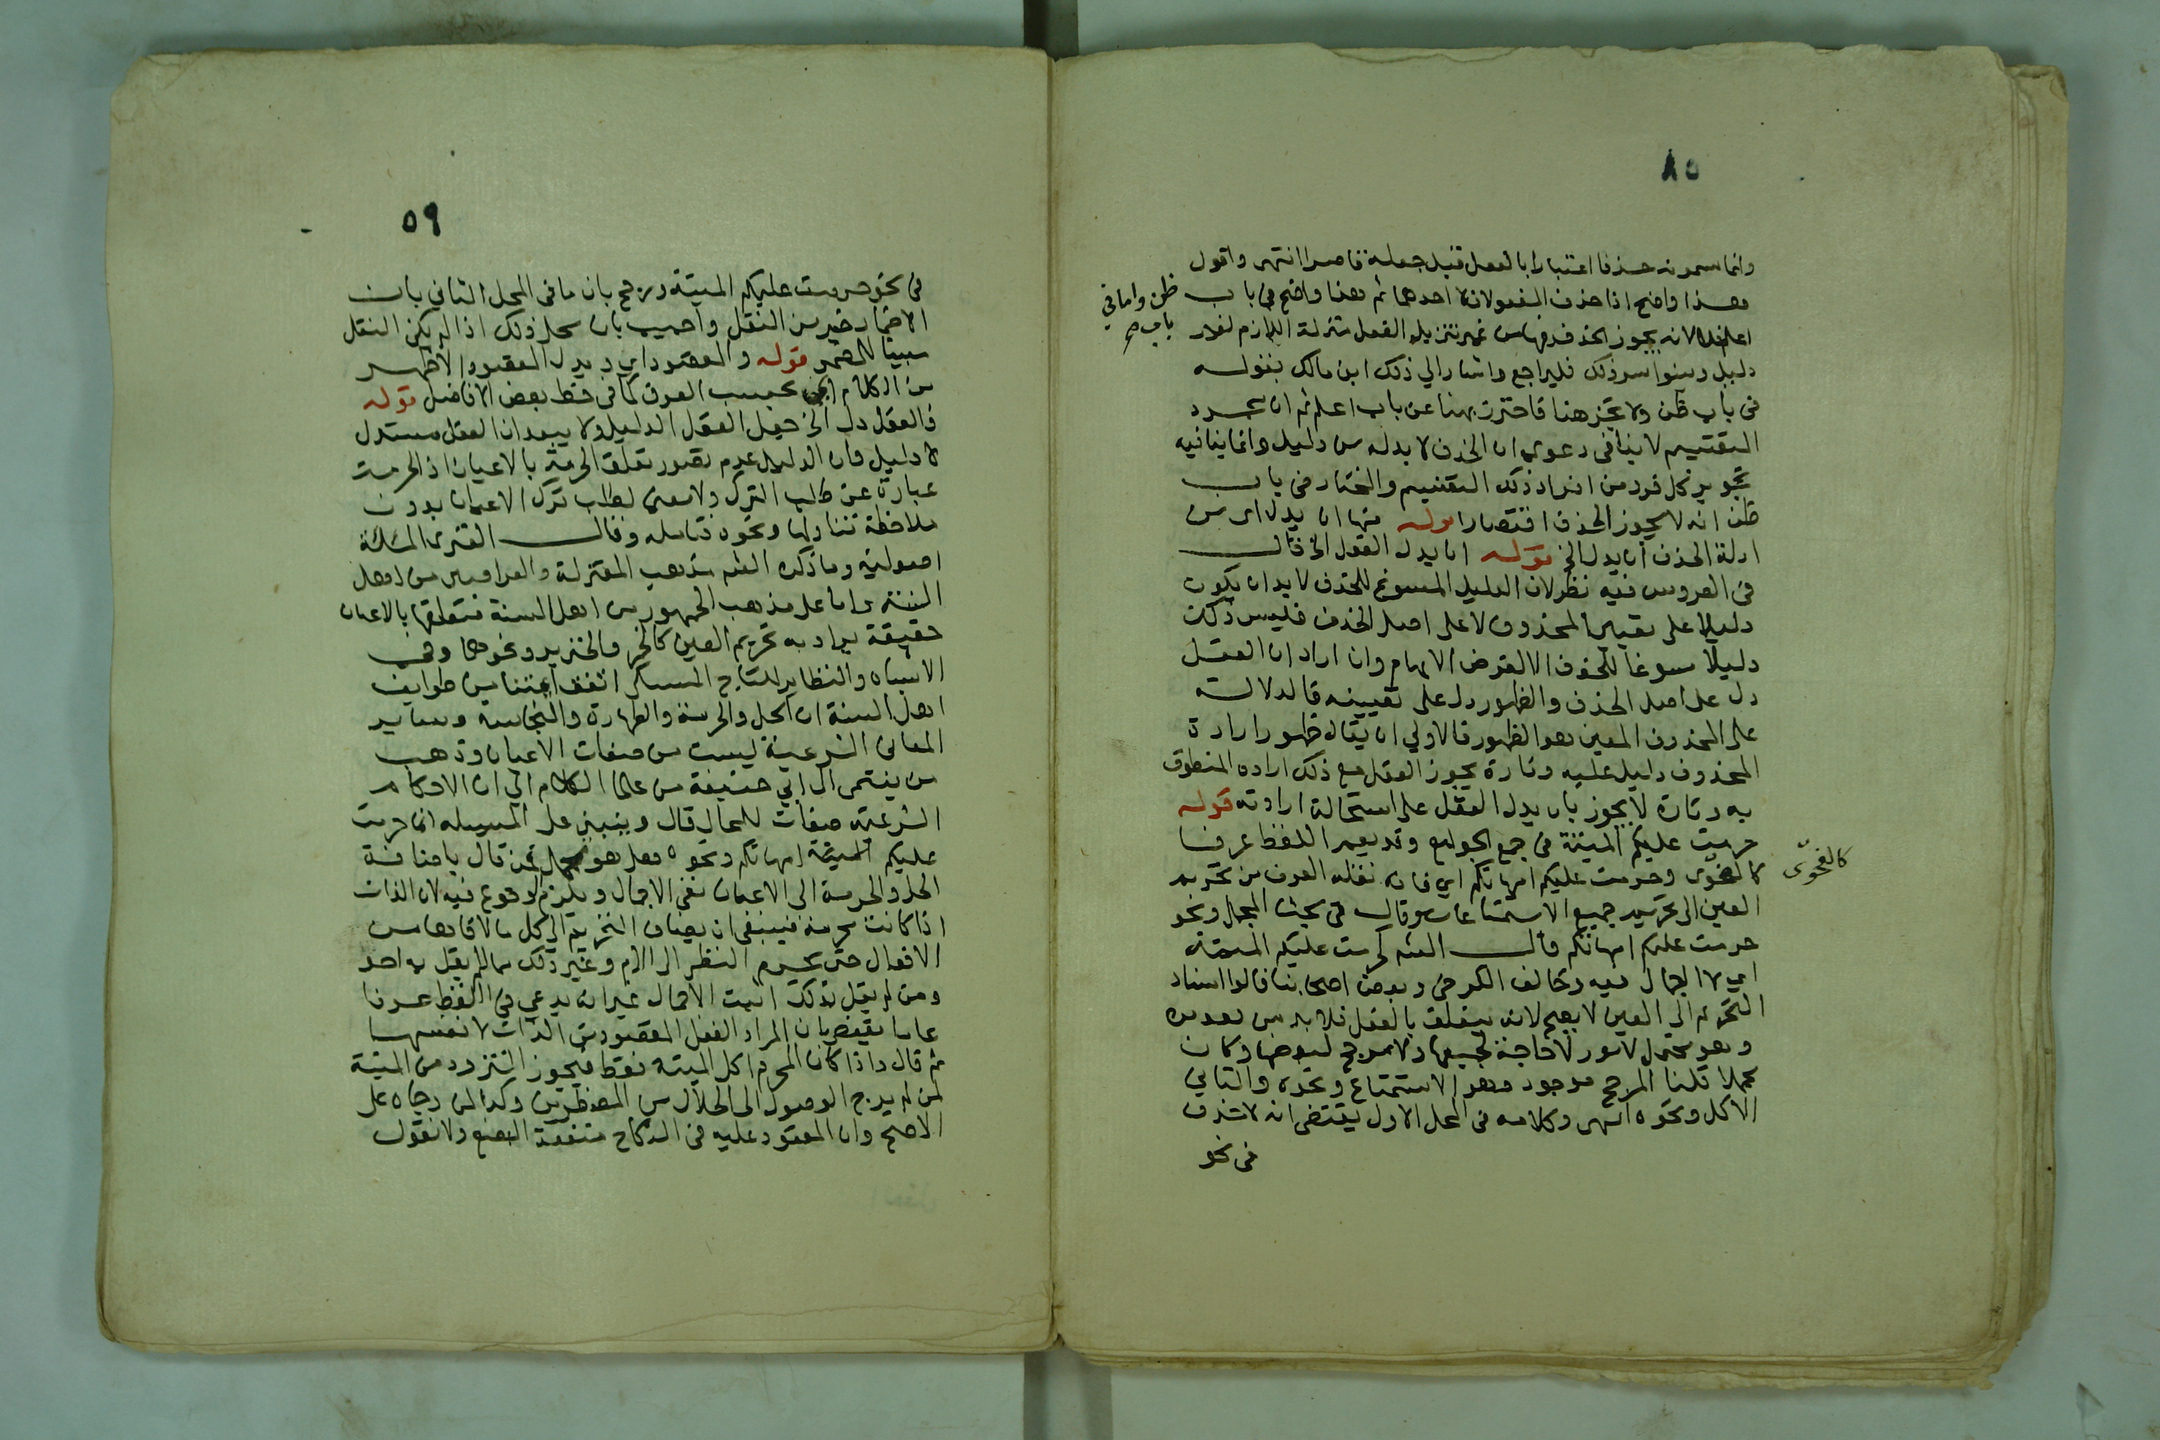 ٥٨
وانما سموه حذفا اعتبارا بالفعل قبل جعله قاصرا انتهى واقول
هذا واضح اذا حذف المفعولان لا احدهما ثم هذا واضح في باب
ظن واما في
باب صح
اعلم فلا لانه يجوز الحذف فيها من غير تنزيل الفعل منزلة اللازم لغير
دليل وبينوا سر ذلك فليراجع واشار الي ذلك ابن مالك بقوله
في باب ظن ولا تجز هنا فاحترز بهنا عن باب اعلم ثم ان مجرد
التقسيم لا ينافى دعوى ان الحذف لا بد له من دليل وانما ينافيه
تجويز كل فرد من افراد ذلك التقسيم والمختار في باب
ظن انه لا يجوز الحذف اقتصارا قوله منها ان يدل اى من
ادلة الحذف ان يدل الخ قوله ان يدل العقل الخ قال
في العروس فيه نظر لان الدليل المسوغ للحذف لا بد ان يكون
دليلا على تعيين المحذوف لا على اصل الحذف فليس ذلك
دليلا مسوغا للحذف الا لغرض الابهام وان اراد ان العقل
دل على اصل الحذف والظهور دل على تعيينه فالدلالة
على المحذوف المعين هو الظهور فالاولي ان يقال ظهور ارادة
المحذوف دليل عليه وتارة يجوز العقل مع ذلك ارادة المنطوق
به وتارة لا يجوز بان يدل العقل على استحالة ارادته قوله
حرمت عليكم الميتة في جمع الجوامع وقد يعمم اللفظ عرفا
كالفحوى وحرمت عليكم امهاتكم اي فانه نقله العرف من تحريم
كالفحوّى
العين الى تحريم جميع الاستمتاعات وقال في بحث المجمل ونحو
حرمت عليكم امهاتكم قال الشم كحرمت عليكم الميتة
اي لا اجمال فيه وخالف الكرخي وبعض اصحابنا قالوا اسناد
التحريم الى العين لا يصح لانه يتعلق بالفعل فلا بد من تقديره
وهو محتمل لامور لا حاجة لجميعها ولا مرجح لبعضها وكان
مجملا قلنا المرجح موجود وهو الاستمتاع ونحوه والثاني
الاكل ونحوه انتهى وكلامه في المحل الاول يقتضى انه لا حذف
في نحو
٥٩
في نحو حرمت عليكم الميتة ورجح بان ما في المحل الثاني بان
الاضمار خير من النقل واجيب بان محل ذلك اذا لم يكن النقل
مبينا للمضمر قوله والمقصود اي ويدل المقصود الاظهر
من الكلام اي بحسب العرف كما في خط بعض الافاضل قوله
فالعقل دل الخ جعل العقل الدليل ولا يبعد ان العقل مستدل
لا دليل وان الدليل عدم تصور تعلق الحرمة بالاعيان اذ الحرمة
عبارة عن طلب الترك ولا معنى لطلب ترك الاعيان بدون
ملاحظة تناولها ونحوه فتامله وقال الفنرى المسئلة
اصولية وما ذكره الشم مذهب المعتزلة والعراقيين من اهل
السنة واما على مذهب الجمهور من اهل السنة فتعلقها بالاعيان
حقيقة يراد به تحريم العين كالخمر والخنزير ونحوهما وفي
الاشباه والنظائر للتاج السبكى اتفق ائمتنا من طوايف
اهل السنة ان الحل والحرمة والطهارة والنجاسة وساير
المعانى الشرعية ليست من صفات الاعيان وذهب
من ينتمى الى ابي حنيفة من علما الكلام الي ان الاحكام
الشرعية صفات للمحال قال وينبنى على المسئله ان حرمت
عليكم الميتة امهاتكم ونحوه هل هو مجمل فمن قال باضافة
الحل والحرمة الى الاعيان نفى الاجمال ويلزم الوقوع فيه لان الذات
اذا كانت محرمة فينبغى ان يضاف التحريم الى كل ما لاقاها من
الافعال حتى يحرم النظر الى الام وغير ذلك مما لم يقل به احد
ومن لم يقل بذلك اثبت الاجمال غير انه يدعي في اللفظ عرفا
عاما يقتضى بان المراد الفعل المقصود من الذات لا نفسها
ثم قال واذا كان المحرم اكل الميتة فقط فيجوز التزود من الميتة
لمن لم يرج الوصول الى الحلال من المضطرين وكذا لمن رجاه على
الاصح وان المعقود عليه في النكاح منفعة البضع ولا نقول